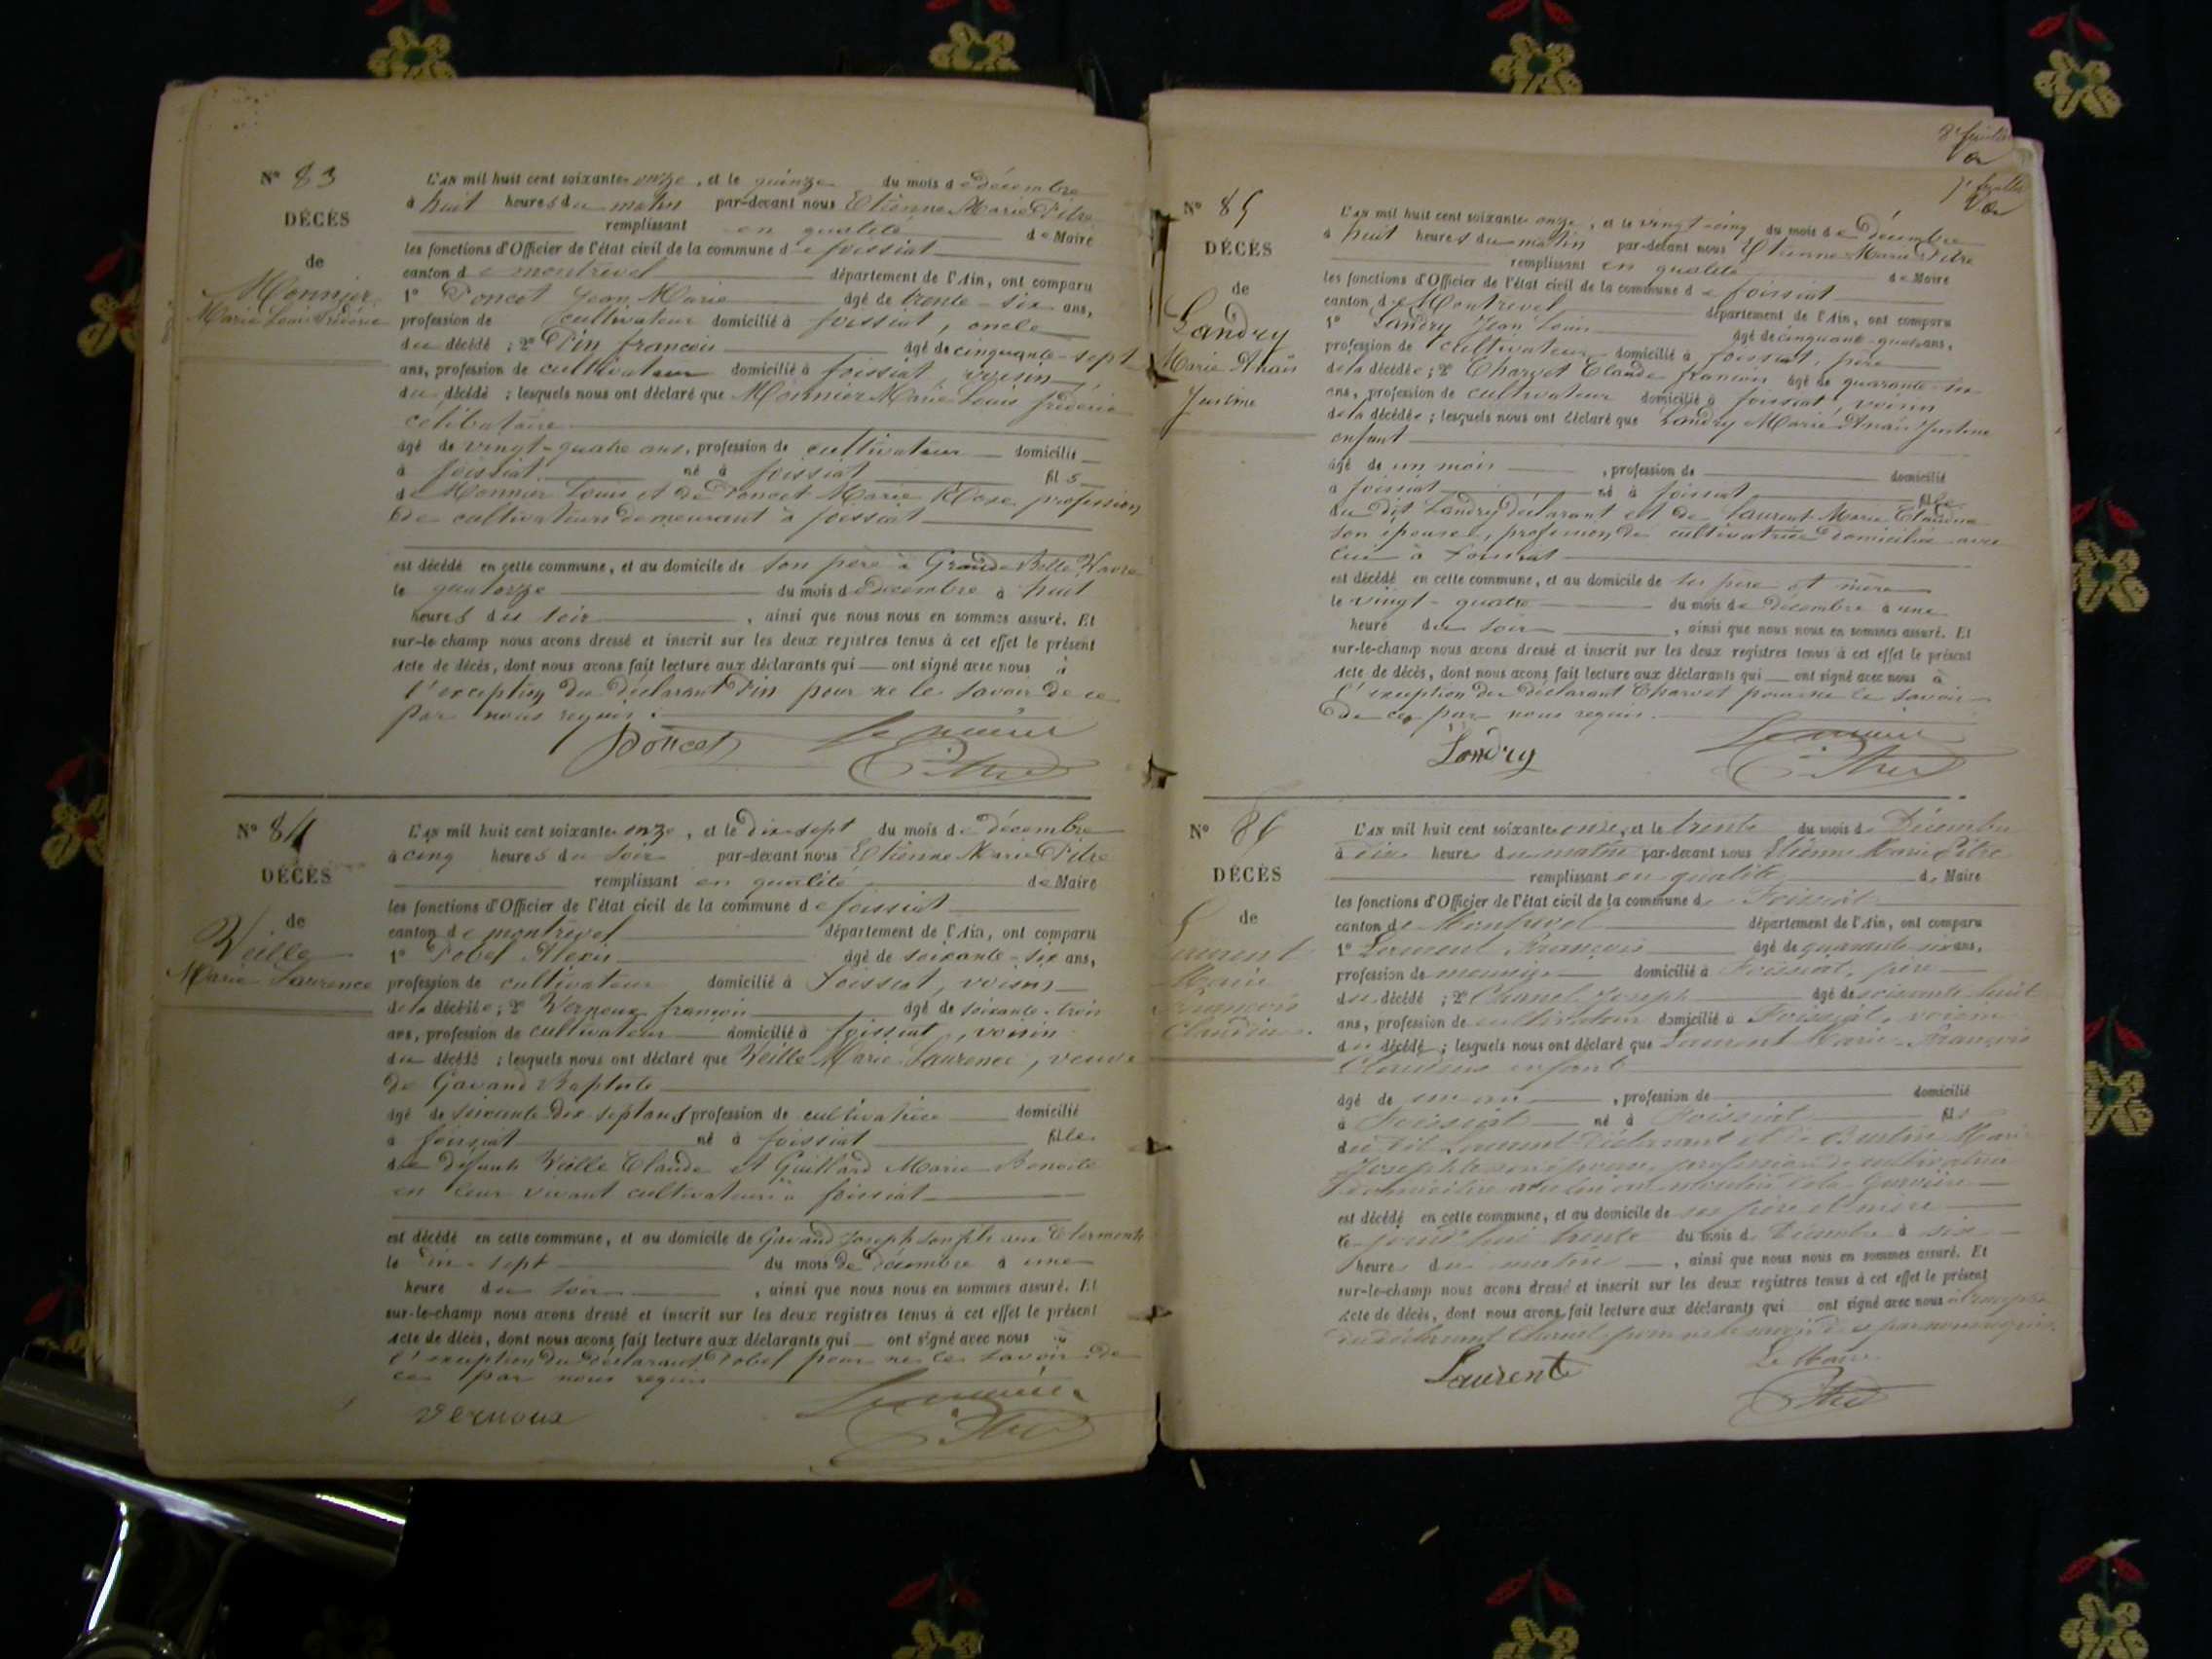 N° 83
DÉCÈS
de
Monnier
Marie Louis Frédéric
L'AN mil huit cent soixante onze, et le quinze du mois de décembre
à huit heures du matin par-devant nous Etienne Marie Pitre
remplissant en qualité de Maire
les fonctions d'Officier de l'état civil de la commune de foissiat
canton de montrevel département de l'Ain, ont comparu
1° Poncet Jean Marie âgé de trente-six ans,
profession de cultivateur domicilié à foissiat, oncle
du décédé ; 2° Pin françois âgé de cinquante-sept
ans, profession de cultivateur domicilié à foissiat, voisin
du décédé ; lesquels nous ont déclaré que Monnier Marie Louis frédéric
célibataire
âgé de vingt-quatre ans, profession de cultivateur domicilié
à foissiat né à foissiat fils
de Monnier Louis et de Poncet Marie Rose profession
de cultivateurs demeurant à foissiat
est décédé en cette commune, et au domicile de son père à Grande Belle
le quatorze du mois de décembre à huit
heures du soir, ainsi que nous nous en sommes assuré. Et
sur-le-champ nous avons dressé et inscrit sur les deux registres tenus à cet effet le présent
Acte de décès, dont nous avons fait lecture aux déclarants qui ont signé avec nous à
l'exception du déclarant Pin pour ne le savoir de ce
par nous requis.
Poncet Le maire
Pitre
N° 84
DÉCÈS
de
Veille
Marie Laurence
L'AN mil huit cent soixante onze, et le dix sept du mois de décembre
à cinq heures du soir par-devant nous Etienne Marie Pitre
remplissant en qualité de Maire
les fonctions d'Officier de l'état civil de la commune de foissiat
canton de montrevel département de l'Ain, ont comparu
1° Pobel Alexis âgé de soixante-six ans,
profession de cultivateur domicilié à foissiat, voisin
de la décédée ; 2° Vernoux françois âgé de soixante-trois
ans, profession de cultivateur domicilié à foissiat, voisin
du décédé ; lesquels nous ont déclaré que Veille Marie Laurence, veuve
de Gavand Baptiste
âgé de soixante dix-sept ans, profession de cultivatrice domicilié
à foissiat né à foissiat fille
de défunts Veille Claude et Guillard Marie Benoite
en leur vivant cultivateurs à foissiat
est décédé en cette commune, et au domicile de Gavand Joseph son fils aux
le dix-sept du mois de décembre à une
heure du soir, ainsi que nous nous en sommes assuré. Et
sur-le-champ nous avons dressé et inscrit sur les deux registres tenus à cet effet le présent
Acte de décès, dont nous avons fait lecture aux déclarants qui ont signé avec nous à
l'exception du déclarant Pobel pour ne le savoir de
ce par nous requis
Vernoux Le maire
Pitre
N° 85
DÉCÈS
de
Landry
Marie Anaïs
Justine
L'AN mil huit cent soixante onze, et le vingt-cinq du mois de Décembre
à huit heures du matin par-devant nous Etienne Marie Pitre
remplissant en qualité de Maire
les fonctions d'Officier de l'état civil de la commune de foissiat
canton de Montrevel département de l'Ain, ont comparu
1° Landry Jean Louis âgé de cinquante-quatre ans,
profession de cultivateur domicilié à foissiat, père
de la décédée ; 2° Charvet Claude françois âgé de quarante-six
ans, profession de cultivateur domicilié à foissiat, voisin
de la décédée ; lesquels nous ont déclaré que Landry Marie Anaïs Justine
enfant
âgé de un mois, profession de domicilié
à foissiat né à foissiat fille
du dit Landry déclarant et de Laurent Marie Claudine
son épouse, profession de cultivatrice domiciliée avec
lui à foissiat
est décédé en cette commune, et au domicile de ses père et mère
le vingt-quatre du mois de décembre à une
heure du soir, ainsi que nous nous en sommes assuré. Et
sur-le-champ nous avons dressé et inscrit sur les deux registres tenus à cet effet le présent
Acte de décès, dont nous avons fait lecture aux déclarants qui ont signé avec nous à
l'exception du déclarant Charvet pour ne le savoir
de ce par nous requis.
Landry Le maire
Pitre
N° 86
DÉCÈS
de
Laurent
Marie
François
Claudius
L'AN mil huit cent soixante onze, et le trente du mois de Décembre
à dix heures du matin par-devant nous Etienne Marie Pitre
remplissant en qualité de Maire
les fonctions d'Officier de l'état civil de la commune de Foissiat
canton de Montrevel département de l'Ain, ont comparu
1° Laurent François âgé de quarante-six ans,
profession de meunier domicilié à Foissiat, père
du décédé ; 2° Chanel Joseph âgé de soixante huit
ans, profession de cultivateur domicilié à Foissiat, voisin
du décédé ; lesquels nous ont déclaré que Laurent Marie François
Claudius enfant
âgé de un an, profession de domicilié
à Foissiat né à Foissiat fils
du dit Laurent Déclarant et de Marie
Josephte son épouse, profession de cultivatrice
domiciliée avec lui au moulin de la
est décédé en cette commune, et au domicile de ses père et mère
le jourd'hui trente du mois de Décembre à six
heures du matin, ainsi que nous nous en sommes assuré. Et
sur-le-champ nous avons dressé et inscrit sur les deux registres tenus à cet effet le présent
Acte de décès, dont nous avons fait lecture aux déclarants qui ont signé avec nous à l'exception
du déclarant Chanel pour ne le savoir de ce par nous requis.
Laurent Le Maire
Pitre